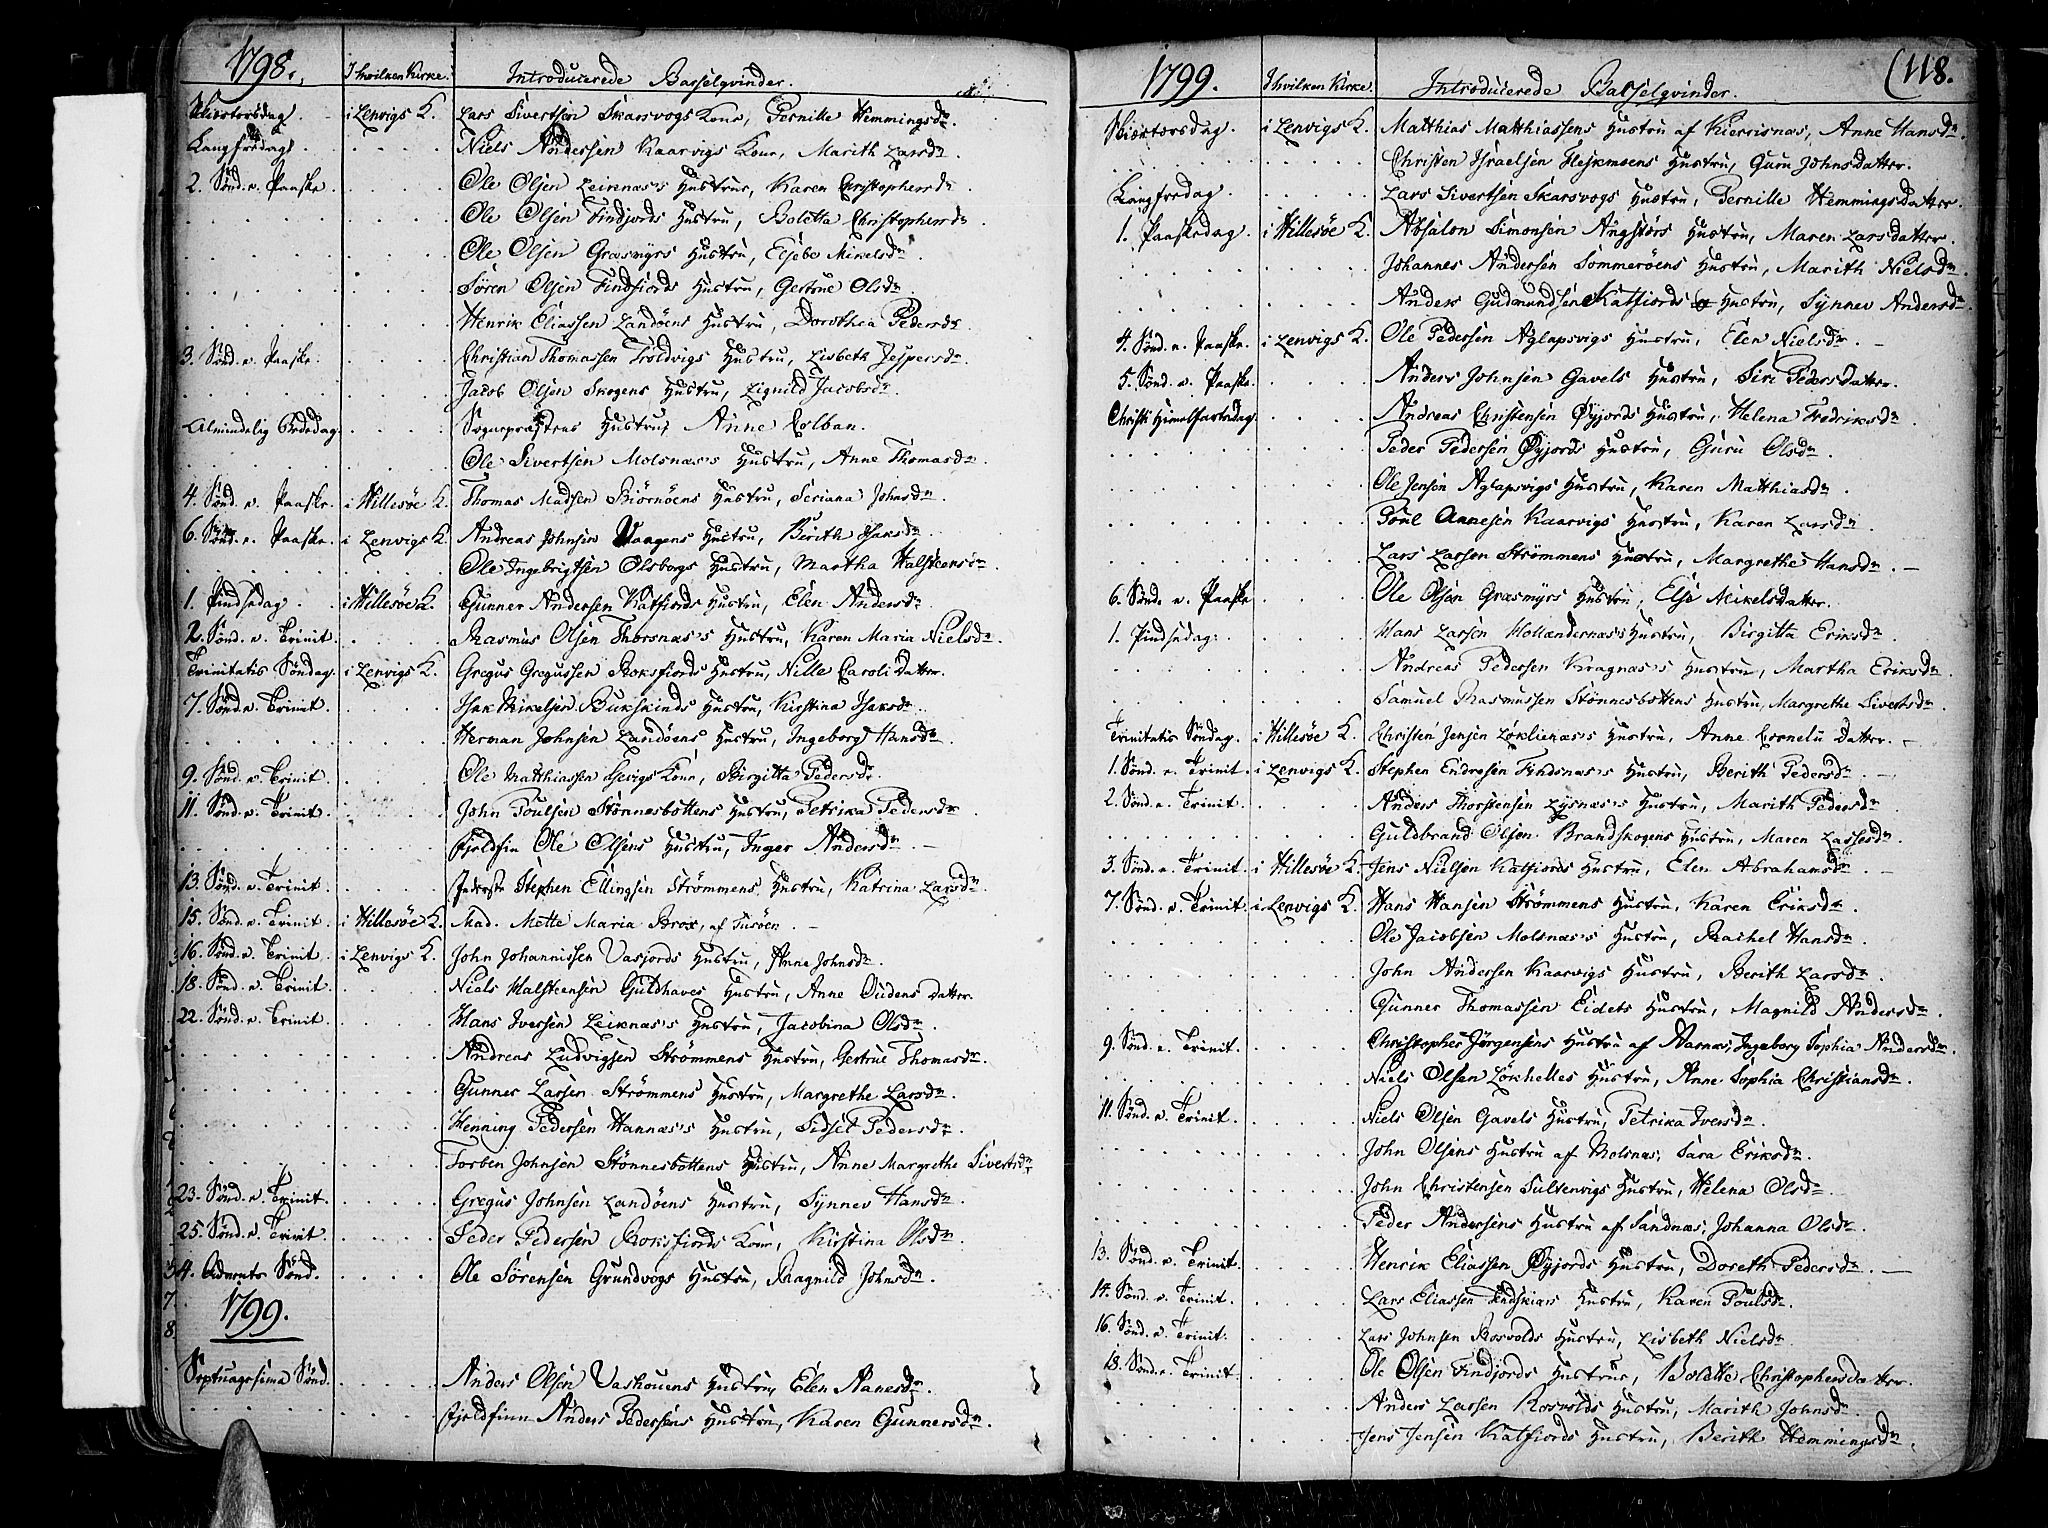 1798. I hvilken Kirke. Introducerede Barselqvinder.
Skiertorsdag i Lenvigs K. Lars Sivertsen Skarsvogs Kone, Pernille Hemmingsdr.
Langfredag Niels Andersen Kaarvigs Kone, Marith Larsdr.
2. Sönd. e. Paaske Ole Olsen Leiknæs's Hustrue, Karen Christophersdr
Ole Olsen Findjords Hustru, Boletta Christophersdr
Ole Olsen Græsmyrs Hustru, Elsebe Mikelsdr
Sören Olsen Findfiords Hustru, Gertrue Olsdr.
Henrik Eliassen Landöens Hustru, Dorothea Pedersdr.
3. Sönd. e. Paaske Christian Thomassen Troldvigs Hustru, Lisbeth Jespersdr
Jacob Olsen Skogens Hustru, Lignild Jacobsdr.
Almindelig Bededag. Sogneprestens Hustru, Anne Colban.
Ole Sivertsen Molsnæs's Hustru, Anne Thomasdr.
4. Sönd. e. Paaske. i Hillesöe K. Thomas Madsen Biörnöens Hustru, Seriana Johnsdr
6. Sönd. e. Paaske. i Lenvigs K. Andreas Johnsen Vaagens Hustru, Berith Isaksdr.
Ole Ingebrigtsen Olsborgs Hustru, Martha Halsteensdr.
1. Pindsedag. i Hillesöe K. Gunner Andersen Katfiords Hustru, Elen Andersdr.
2. Sönd. e. Trinit. Rasmus Olsen Thorsnæs's Hustru, Karen Maria Nielsdr.
Trinitatis Söndag. i Lenvigs K. Gregus Gregussen Roksfiords Hustru, Nille Caroli Datter.
7. Sönd. e. Trinit. Isak Mikelsen Bukskinds Hustru, Kirstina Isaksdr.
Herman Johnsen Landöens Hustru, Ingeborg Hansdr.
9. Sönd. e. Trinit. Ole Matthiassen Gevigs Kone, Birgitta Pedersdr.
11. Sönd. e. Trinit. John Poulsen Stönnesbottens Hustru, Petrika Pedersdr
Fjeldfin Ole Olsens Hustru, Inger Andersdr.
13. Sönd. e. Trinit. Stephen Ellingsen Strömmens Hustru, Katrina Larsdr.
15. Sönd. e. Trinit i Hillesöe K. Mad. Mette Maria Brox, af Tusöen.
16. Sönd. e. Trinit i Lenvigs K. John Johannissen Vasjords Hustru, Anna Johnsdr.
18. Sönd. e. Trinit. Niels Halsteensen Guldhaves Hustru, Anne Oudens Datter.
22. Sönd. e. Trinit. Hans Iversen Leiknæs's Hustru, Jacobina Olsdr.
Andreas Ludvigsen Strömmens Hustru, Gertrue Thomasdr.
Gunner Larsen Strömmens Hustru, Margrethe Larsdr.
Henning Pedersen Hannæs's Hustru, Sidsel Pedersdr.
Torben Johnsen Stönnesbottens Hustru, Anne Margrethe Sivertsdr
23. Sönd. e. Trinit. Gregus Johnsen Landöens Hustru, Synnev Hansdr.
25. Sönd. e. Trinit Peder Pedersen Roksfiords Kone, Kirstina Olsdr.
4. Advents Sönd. Ole Sörensen Grundvogs Hustru, Ragnild Johnsdr.
1799.
Septuagesima Sönd. Anders Olsen Vashovens Hustru, Elen Aanesdr.
Fjeldfinn Anders Pedersens Hustru, Karen Gunnersdr.
1799. I hvilken Kirke. Introducerede Barselqvinder. (118.
Skiertorsdag. i Lenvigs K. Matthias Matthiassens Hustru af Kierrisnæs, Anne Hansdr.
Christen Israelsen Flejsmoens Hustru, Guru Johnsdatter.
Langfredag Lars Sivertsen Skarsvogs Hustru, Pernille Hemmingsdatter.
1. Paaskedag. i Hillesöe K. Absalon Simonsen Angstörs Hustru, Maren Larsdatter.
Johannes Andersen Sommeröens Hustru, Marith Nielsdr.
Anders Gudmundsen Katfiords Hustru, Synnev Andersdr.
4. Sönd. e. Paaske. i Lenvigs K. Ole Pedersen Aglapsvigs Hustru, Elen Nielsdr.
5. Sönd. e. Paaske. Anders Johnsen Gavels Hustru, Siri Pedersdatter.
Christi Himmelfartsdag. Andreas Christensen Öyjords Hustru, Helena Fredriksdr.
Peder Pedersen Öyjords Hustru, Guru Olsdr.
Ole Jensen Aglapsvigs Hustru, Karen Matthiasdr.
Poul Annesen Kaarvigs Hustru, Karen Larsdr.
Lars Larsen Strömmens Hustru, Margrethe Hansdr.
6. Sönd. e. Paaske Ole Olsen Græsmyrs Hustru, Else Mikelsdatter.
1. Pindsedag. Hans Larsen Hollændernæs's Hustru, Birgitta Eriksdr.
Andreas Pedersen Kragnæs's Hustru, Martha Eriksdr.
Samuel Rasmussen Stönnesbottens Hustru, Margrethe Sivertsdr.
Trinitatis Söndag. i Hillesöe K. Christen Jensen Löklienæs's Hustru, Anne Cornelu Datter.
1. Sönd. e. Trinit. i Lenvigs K. Stephen Endresen Findsnæs's Hustru, Berith Pedersdr.
2. Sönd. e. Trinit. Anders Thorstensen Lysnæs's Hustru, Marith Pedersdr
Guldbrand Olsen Brandskogens Hustru, Maren Lassesdr.
3. Sönd. e. Trinit. i Hillesöe K. Jens Nielsen Katfiords Hustru, Elen Abrahamsdr.
7. Sönd. e. Trinit. i Lenvigs K. Hans Hansen Strömmens Hustru, Karen Eriksdr.
Ole Jacobsen Molsnæs's Hustru, Rachel Hansdr.
John Andersen Kaarvigs Hustru, Berith Larsdr.
Gunner Thomassen Eidets Hustru, Magnild Andersdr.
9. Sönd. e. Trinit. Christopher Jörgensens Hustru af Aarnæs, Ingeborg Sophia Andersdr.
Niels Olsen Lökhelles Hustru, Anne Sophia Christiansdr.
11. Sönd. e. Trinit. Niels Olsen Gavels Hustru, Petrika Iversdr.
John Olsens Hustru af Molsnæs, Sara Eriksdr.
John Christensen Sultenvigs Hustru, Helena Olsdr.
Peder Andersens Hustru af Sandnæs, Johanna Olsdr.
13. Sönd. e. Trinit. Henrik Eliassen Öyjords Hustru, Doreth Pedersdr.
14. Sönd. e. Trinit. Lars Eliassen Hustru, Karen Poulsdr.
16. Sönd. e. Trinit. Lars Johnsen Rosvolds Hustru, Lisbeth Nielsdr
18. Sönd. e. Trinit. Ole Olsen Findjords Hustrue, Bolette Christophersdatter.
Anders Larsen Rosvolds Hustru, Marith Johnsdr.
Jens Jensen Katfiords Hustru, Berith Hemmingsdr.